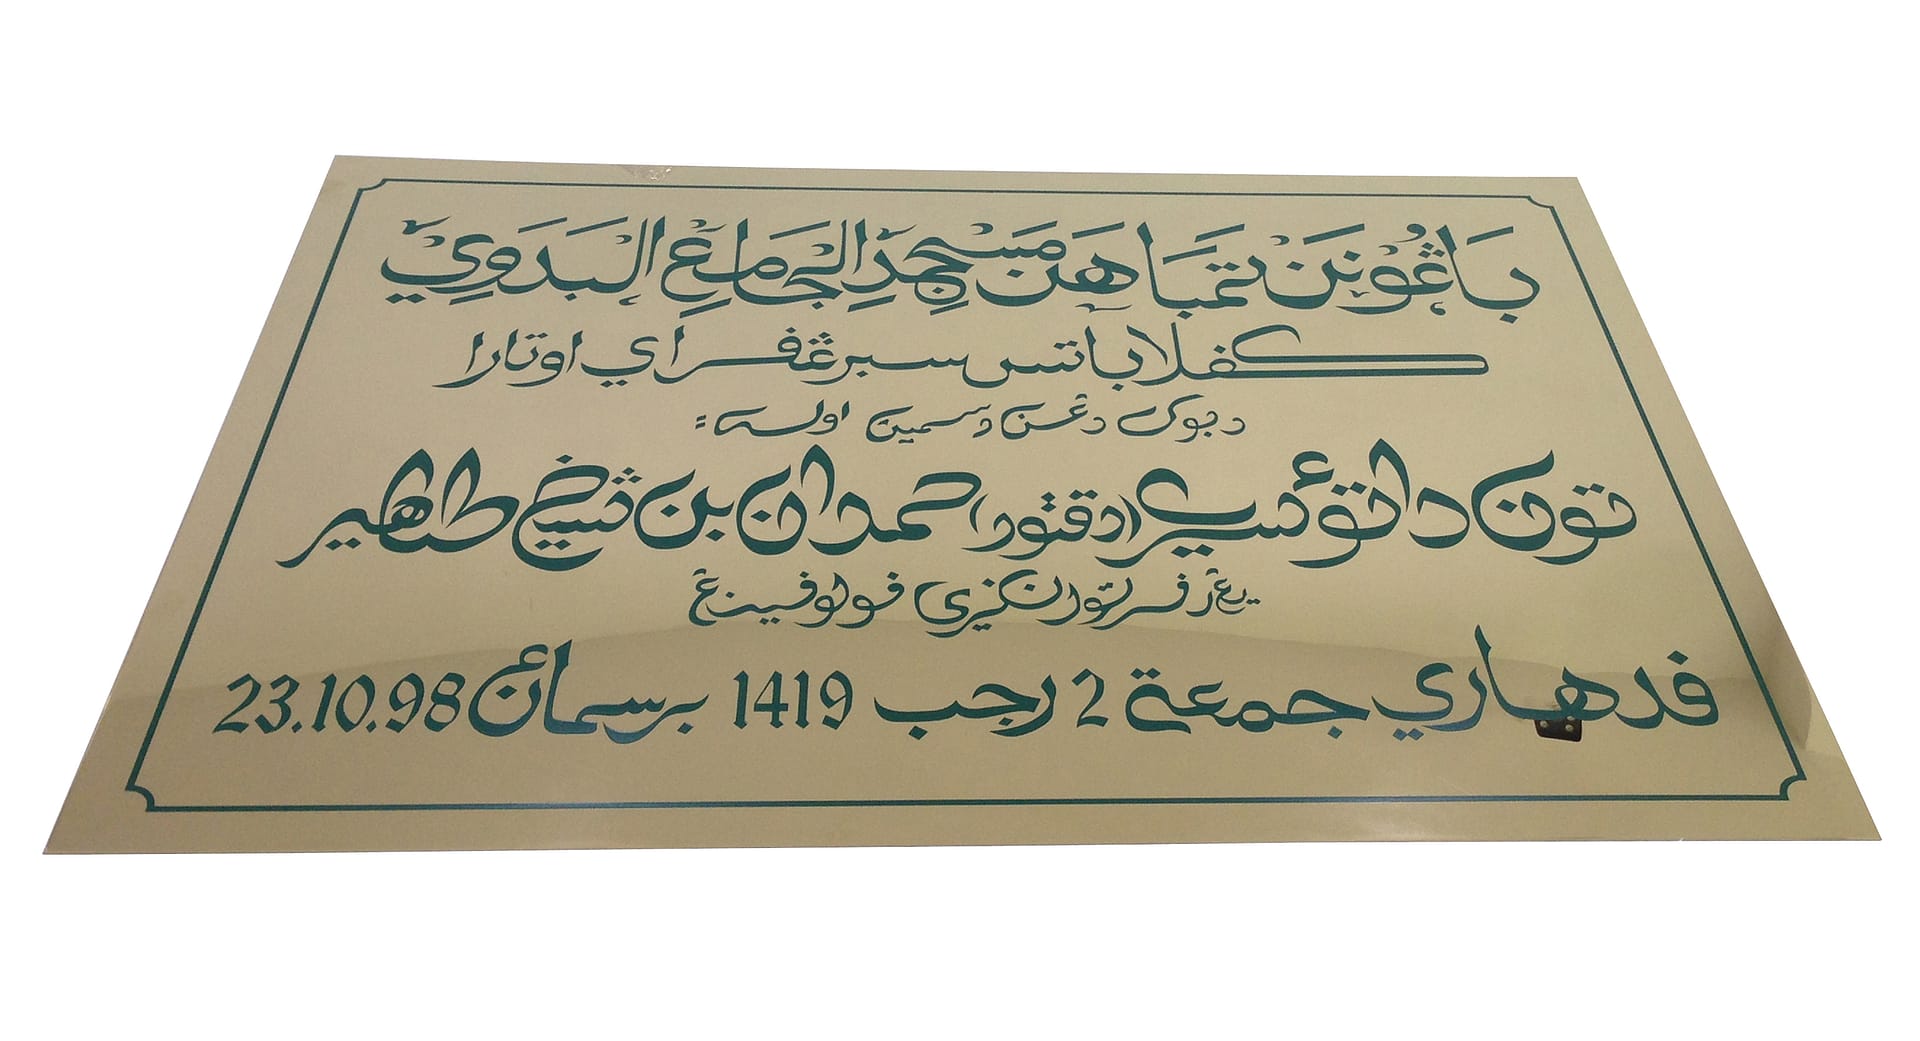 باڠونن تمباهن مسجد الجامع البدوي
كفلا باتس سبرڠ فراي اوتارا
دبوك دڠن رسمين اوله:
تون داتوء سري (دقتور) حمدان بن شيخ طاهير
يڠ دفرتوا نڬري فولو فينڠ
فد هاري جمعة 2 رجب 1419 برسمائن 23.10.98